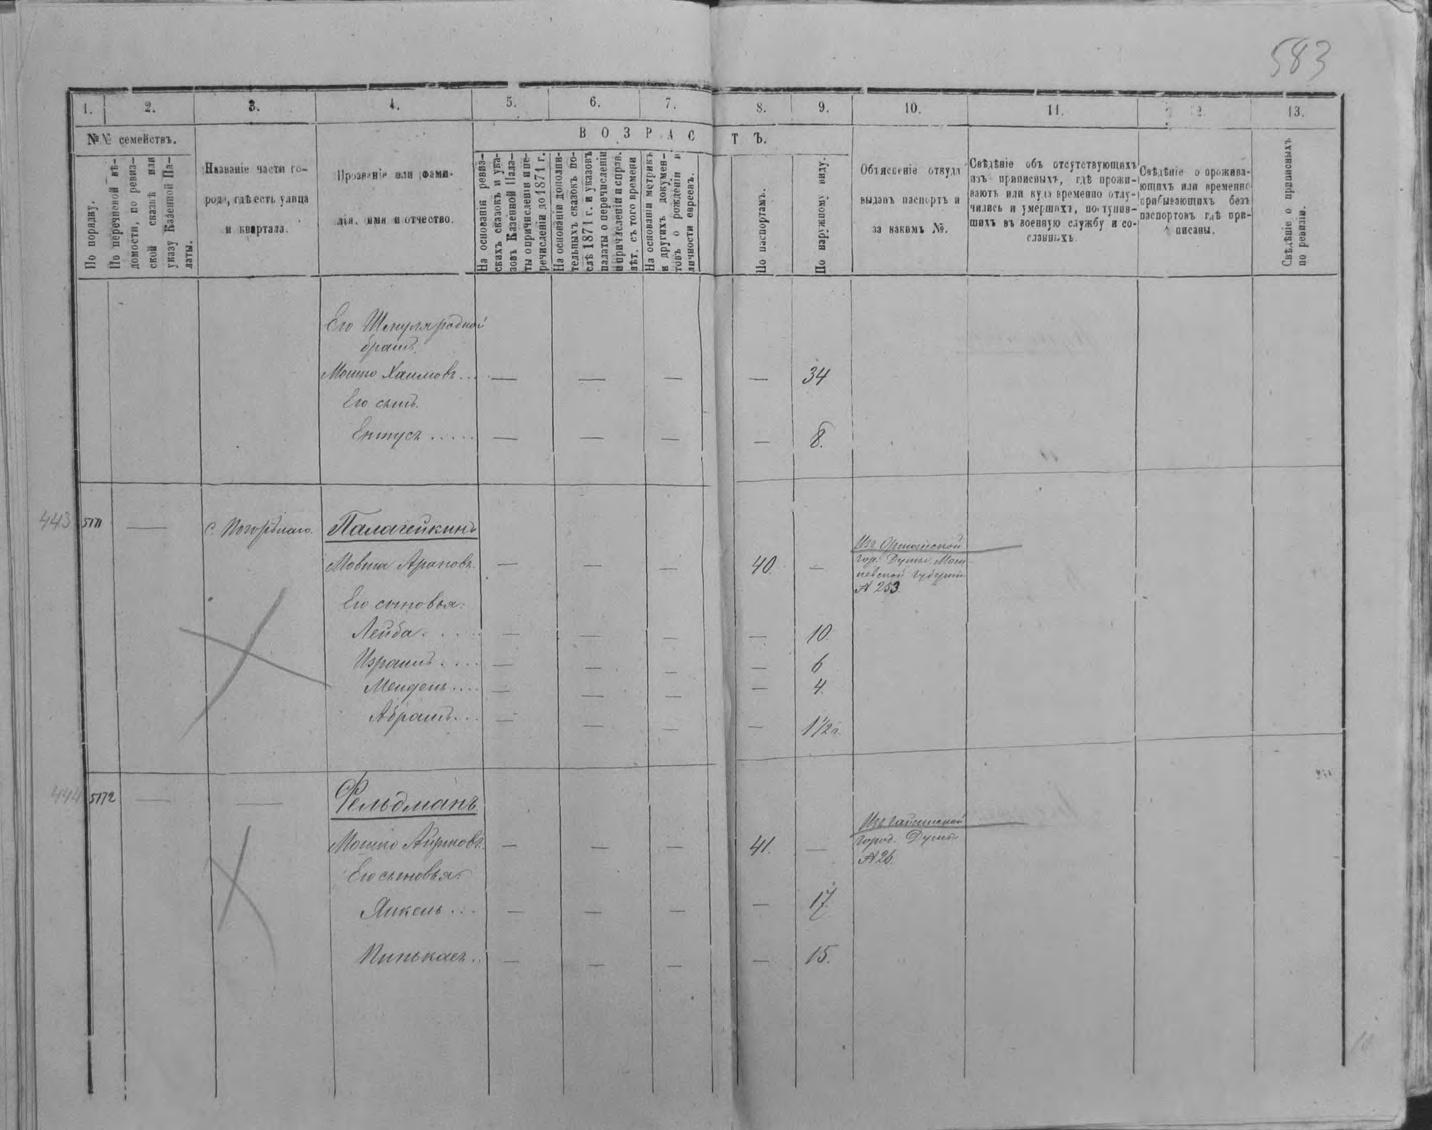 583
1. 2. 3. 4. 5. 6. 7. 8. 9. 10. 11. 12. 13.
№№ семействъ.
По порядку.
По перечневой вѣ-
домости, по ревиз-
ской сказкѣ или
указу Казенной Па-
латы.
Названіе части го-
рода, гдѣ есть улица
и квартала.
Прозваніе или фами-
лія, имя и отчество.
ВОЗРАСТЪ.
На основаніи ревиз-
скихъ сказокъ и ука-
зовъ Казенной Пала-
ты о причисленіи и пе-
речисленіи до 1871 г.
На основаніи дополни-
тельныхъ сказокъ по-
слѣ 1871 г. и указовъ
палаты о перечисленіи
и причисленіи и справ.
лѣт. съ того времени
На основаніи метрикъ
и другихъ докумен-
товъ о рожденіи и
личности евреевъ.
По паспортамъ.
По наружному виду.
Объясненіе откуда
выданъ паспортъ и
за какимъ №.
Свѣдѣніе объ отсутствующихъ
изъ приписныхъ, гдѣ прожи-
ваютъ или куда временно отлу-
чились и умершихъ, поступив-
шихъ въ военную службу и со-
сланныхъ.
Свѣдѣніе о прожива-
ющихъ или временно
прибывающихъ безъ
паспортовъ гдѣ при-
писаны.
Свѣдѣніе о приписныхъ
по ревизіи.
Его
братъ
Мошко Хаимовъ... — — — — 34
Его сынъ
— — — — 8.
443 5171 — с. Погорѣлаго. Палагейкинъ
Мовша Ароновъ — — — 40. —
Изъ Оршанской
гор. Думы Моги-
левской губерніи
№ 253
Его сыновья:
Лейба.... — — — — 10.
Израиль.... — — — — 6
Мендель.... — — — — 4.
Абрамъ... — — — — 1 1/2 г.
444 5172 — — Фельдманъ
Мошко — — — 41. —
Изъ Гайсинской
город. Думы
№ 26.
Его сыновья:
Янкель... — — — — 17.
Пинькасъ.. — — — — 15.